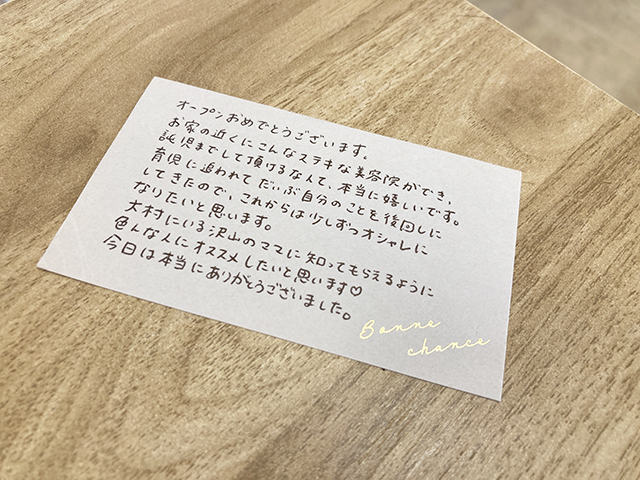 オープンおめでとうございます。
お家の近くにこんなステキな美容院ができ、
託児までして頂けるなんて、本当に嬉しいです。
育児に追われてだいぶ自分のことを後回しに
してきたので、これからは少しずつオシャレに
なりたいと思います。
大村にいる沢山のママに知ってもらえるように
色んな人にオススメしたいと思います♡
今日は本当にありがとうございました。
Bonne
chance